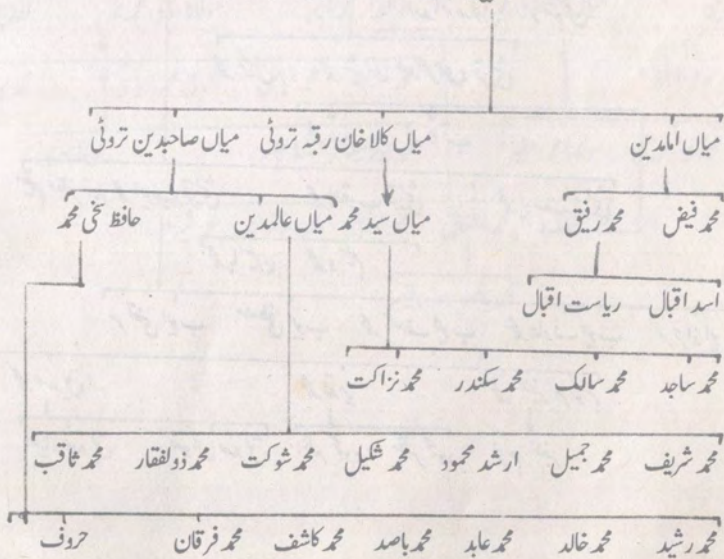 میاں امامدین میاں کالا خان رقبہ تروٹی میاں صاحبدین تروٹی
محمد فیض محمد رفیق میاں سید محمد میاں عالمدین حافظ سخی محمد
اسد اقبال ریاست اقبال
محمد ساجد محمد سالک محمد سکندر محمد نزاکت
محمد شریف محمد جمیل ارشد محمود محمد شکیل محمد شوکت محمد ذولفقار محمد ثاقب
محمد رشید محمد خالد محمد عابد محمد باصد محمد کاشف محمد فرقان حروف